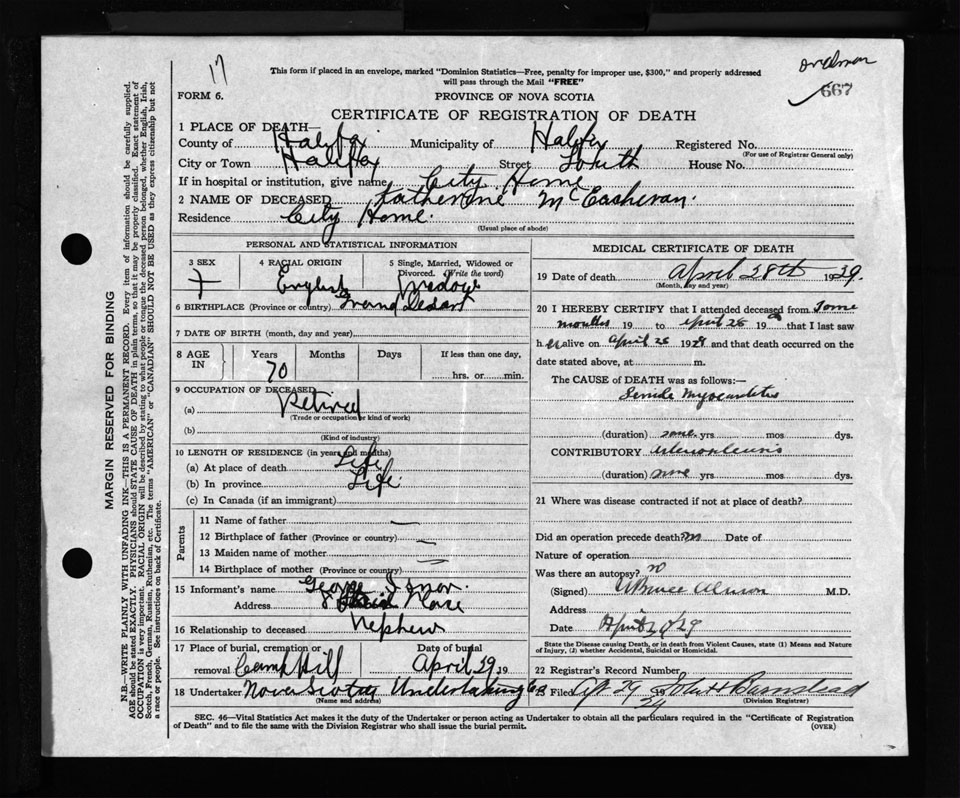 17
667
This form if placed in an envelope, marked "Dominion Statistics—Free, penalty for improper use, $300," and properly addressed
will pass through the Mail "FREE"
FORM 6.
PROVINCE OF NOVA SCOTIA
CERTIFICATE OF REGISTRATION OF DEATH
1 PLACE OF DEATH—
County of Halifax Municipality of Halifax Registered No.
(For use of Registrar General only)
City or Town Halifax Street South House No.
If in hospital or institution, give name City Home
2 NAME OF DECEASED Katherine
Residence City Home.
(Usual place of abode)
PERSONAL AND STATISTICAL INFORMATION
3 SEX 4 RACIAL ORIGIN 5 Single, Married, Widowed or
Divorced. (Write the word)
English
6 BIRTHPLACE (Province or country)
7 DATE OF BIRTH (month, day and year)
8 AGE IN Years Months Days If less than one day,
70 hrs. or min.
9 OCCUPATION OF DECEASED
(a) Retired
(Trade or occupation or kind of work)
(b)
(Kind of industry)
10 LENGTH OF RESIDENCE (in years and months)
(a) At place of death Life
(b) In province Life
(c) In Canada (if an immigrant)
Parents
11 Name of father —
12 Birthplace of father (Province or country) —
13 Maiden name of mother
14 Birthplace of mother (Province or country) —
15 Informant's name George
Address Place
16 Relationship to deceased Nephew
17 Place of burial, cremation or Date of burial
removal Camp Hill April 29 19
18 Undertaker Nova Scotia Undertaking Co
(Name and address)
MEDICAL CERTIFICATE OF DEATH
19 Date of death April 28th 1929.
(Month, day and year)
20 I HEREBY CERTIFY that I attended deceased from Some
months 19 to April 28 19 that I last saw
h er alive on April 28 1929 and that death occurred on the
date stated above, at m.
The CAUSE of DEATH was as follows:—
Senile Myocarditis
(duration) some yrs mos dys.
CONTRIBUTORY arteriosclerosis
(duration) some yrs. mos dys.
21 Where was disease contracted if not at place of death?
Did an operation precede death? no Date of
Nature of operation
Was there an autopsy? no
(Signed) M.D.
Address
Date April 29/29
State the Disease causing Death, or in death from Violent Causes, state (1) Means and Nature
of Injury, (2) whether Accidental, Suicidal or Homicidal.
22 Registrar's Record Number
23 Filed Apr 29 19 John H Barnstead
(Division Registrar)
SEC. 46—Vital Statistics Act makes it the duty of the Undertaker or person acting as Undertaker to obtain all the particulars required in the "Certificate of Registration
of Death" and to file the same with the Division Registrar who shall issue the burial permit.
(OVER)
MARGIN RESERVED FOR BINDING
N.B.—WRITE PLAINLY WITH UNFADING INK—THIS IS A PERMANENT RECORD. Every item of information should be carefully supplied.
AGE should be stated EXACTLY. PHYSICIANS should STATE CAUSE OF DEATH in plain terms, so that it may be properly classified. Exact statement of
OCCUPATION is very important. RACIAL ORIGIN will be described by stating to what people or tongue the deceased person belonged, whether English, Irish,
Scotch, French, German, Russian, Ruthenian, etc. The terms "AMERICAN" or "CANADIAN" SHOULD NOT BE USED as they express citizenship but not
a race or people. See instructions on back of Certificate.